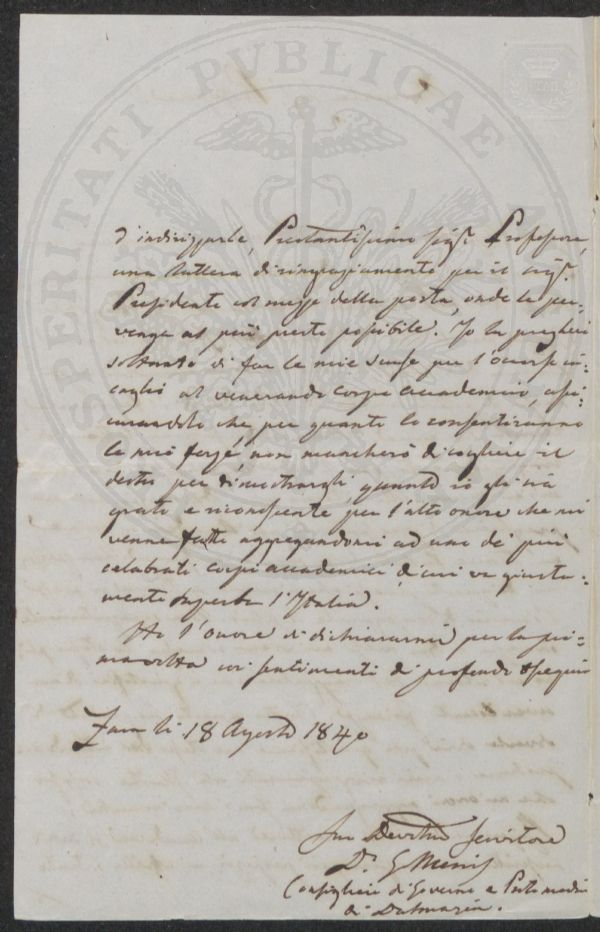 PROSPERITATI PUBLICAE A
d'indirizzarle, Prestantissimo Sigr. Professore,
una lettera di ringraziamento per il Sigr.
Presidente col mezzo della posta, onde le per-
venga al più presto possibile. Io la pregherei
soltanto di far le mie scuse per l'occorso in-
caglio al venerando corpo accademico, assi-
curandolo che per quanto lo consentiranno
le mie forze, non mancherò di cogliere il
destro per dimostrargli quanto io gli sia
grato e riconoscente per l'alto onore che mi
venne fatto aggregandomi ad uno de' più
celebrati corpi accademici di cui va giusta-
mente superba l'Italia.
Ho l'onore di dichiararmi per la pri-
ma volta coi sentimenti di profondo ossequio
Zara li 18 Agosto 1840
Suo Devotmo Servitore
Dr. G Menis
Consigliere di Governo e Protomedico
di Dalmazia.